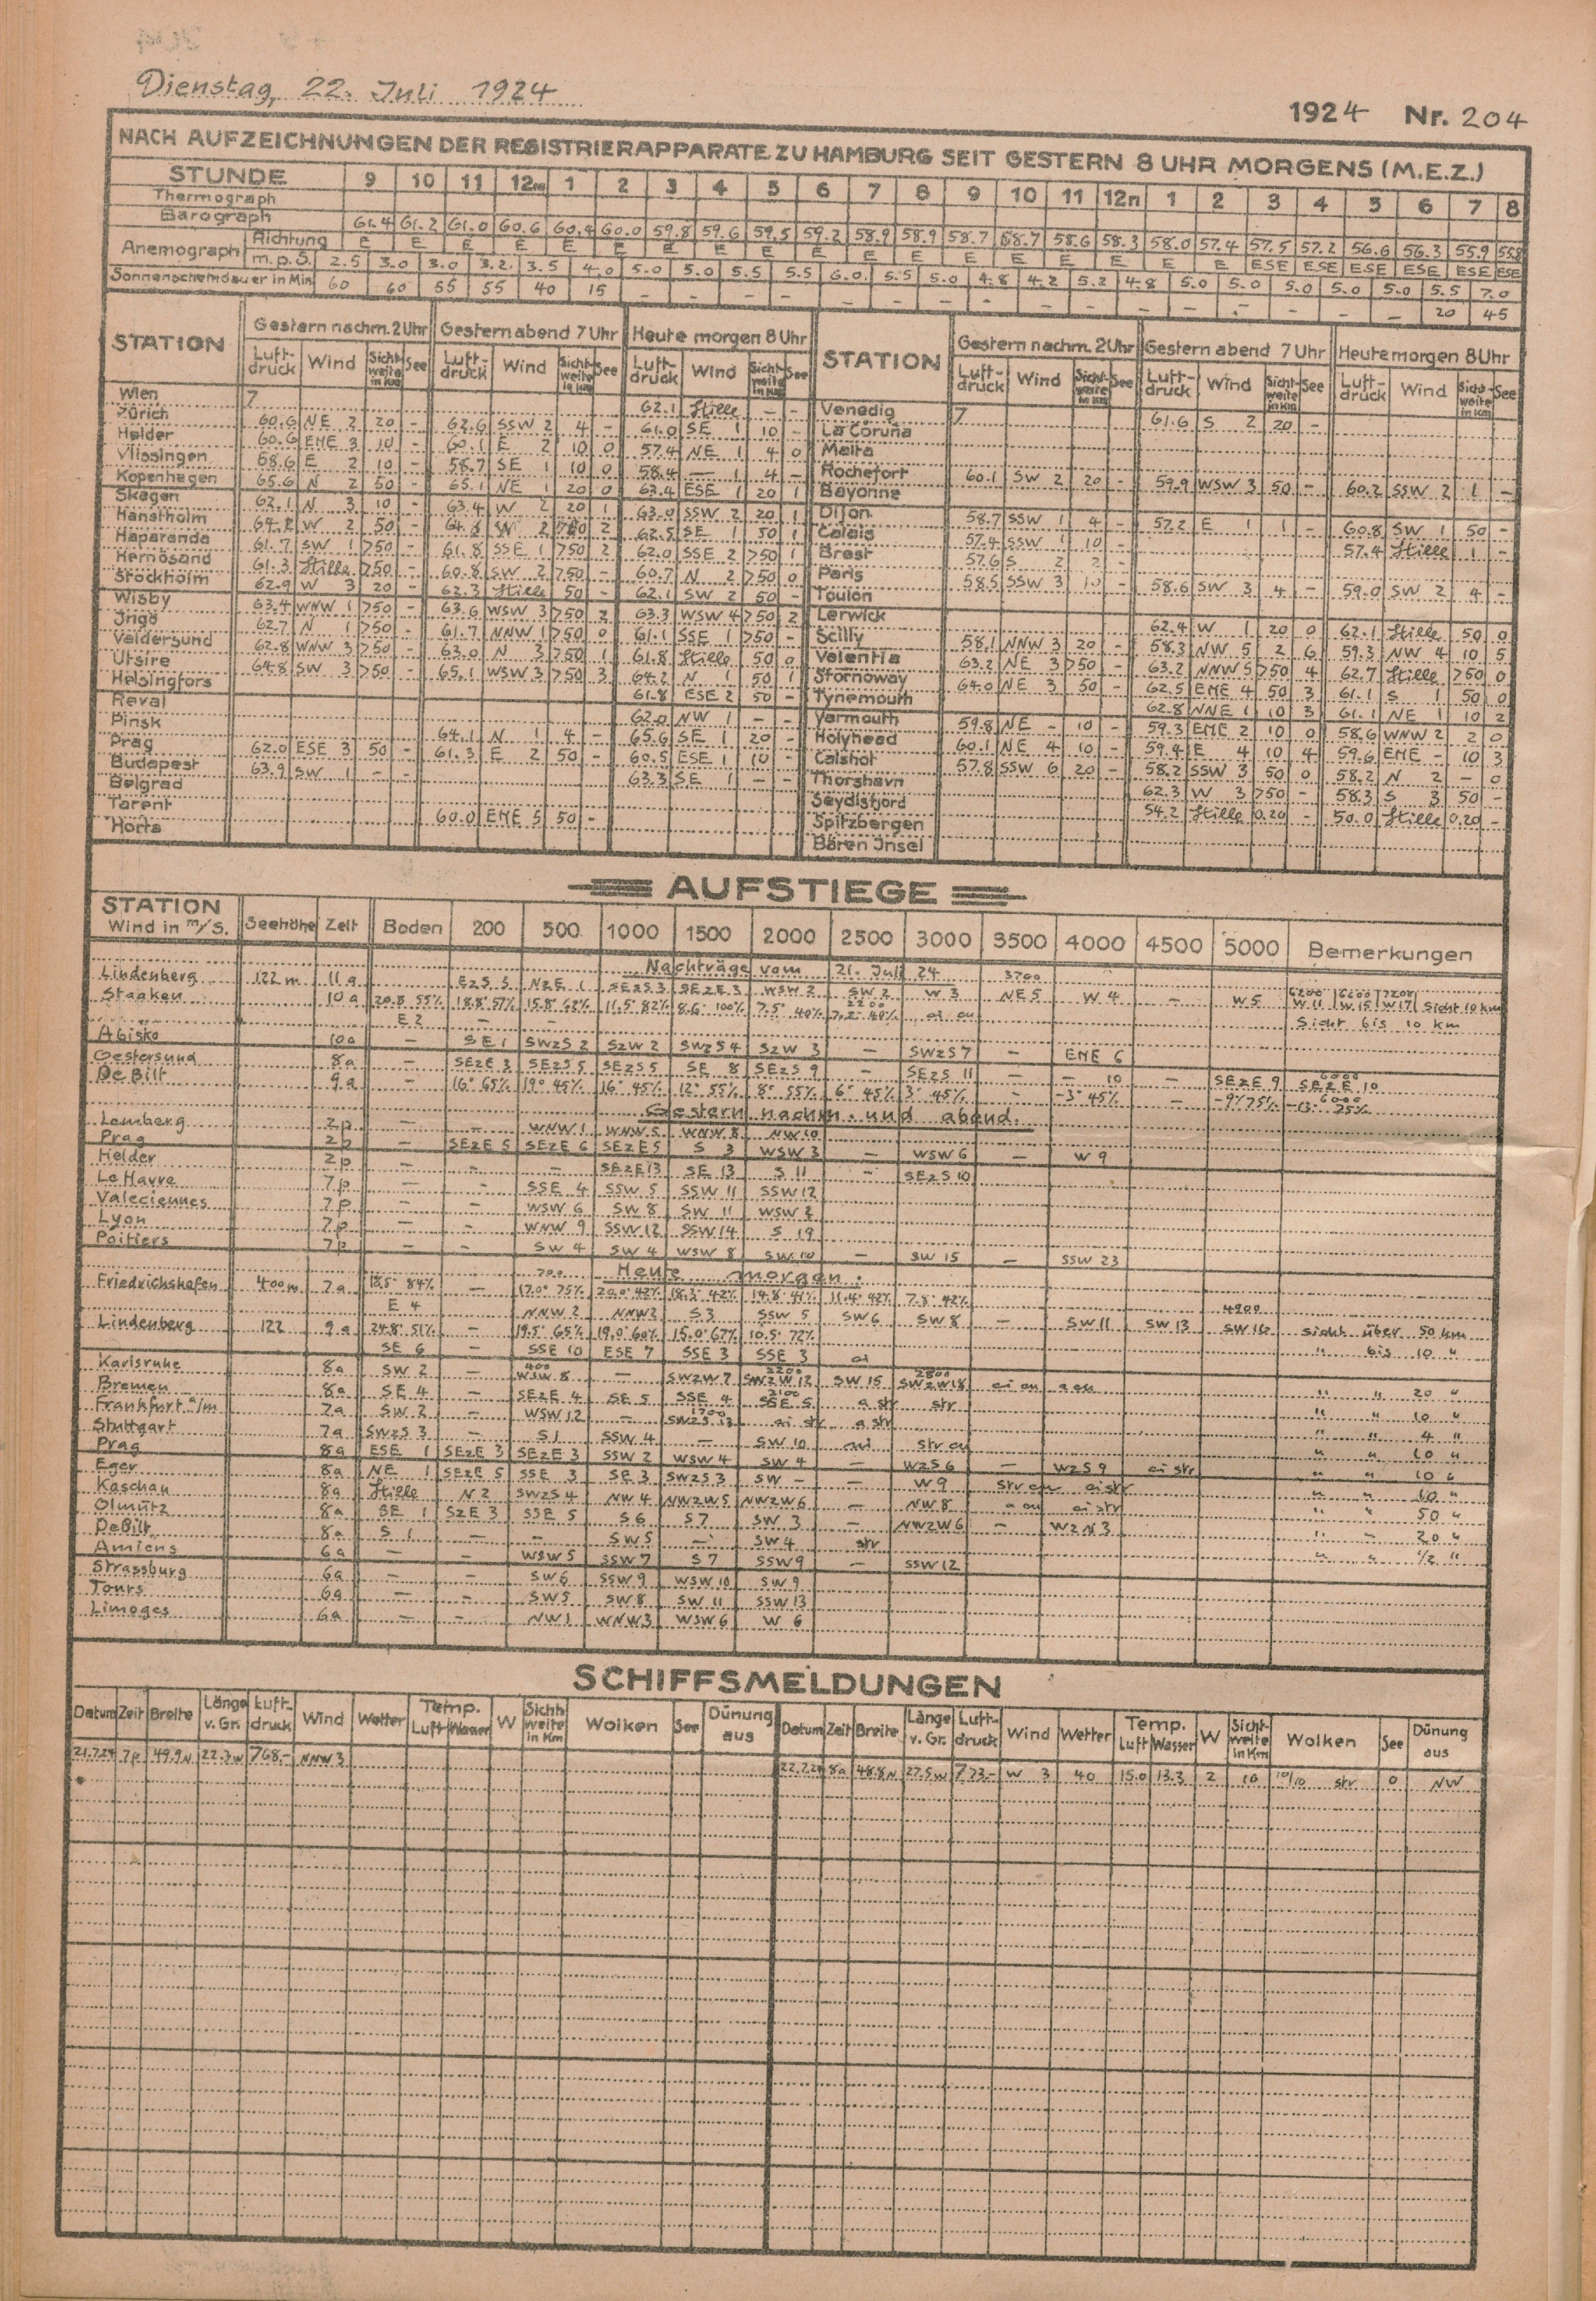 Dienstag, 22. Juli 1924
1924 Nr. 204
NACH AUFZEICHNUNGEN DER REGISTRIERAPPARATE ZU HAMBURG SEIT GESTERN 8 UHR MORGENS (M.E.Z.)
STUNDE 9 10 11 12m 1 2 3 4 5 6 7 8 9 10 11 12n 1 2 3 4 5 6 7 8
Thermograph
Barograph 61.4 61.2 61.0 60.6 60.4 60.0 59.8 59.6 59.5 59.2 58.9 58.9 58.7 58.7 58.6 58.3 58.0 57.4 57.5 57.2 56.6 56.3 55.9 55.8
Anemograph Richtung E E E E E E E E E E E E E E E E E E ESE ESE ESE ESE ESE ESE
m.p.S. 2.5 3.0 3.0 3.2 3.5 4.0 5.0 5.0 5.5 5.5 6.0 5.5 5.0 4.8 4.2 5.2 4.8 5.0 5.0 5.0 5.0 5.0 5.5 7.0
Sonnenscheindauer in Min 60 60 55 55 40 15 – – – – – – – – – – – – – – – – 20 45
STATION Gestern nachm. 2 Uhr Gestern abend 7 Uhr Heute morgen 8 Uhr STATION Gestern nachm. 2 Uhr Gestern abend 7 Uhr Heute morgen 8 Uhr
Luftdruck Wind Sichtweite in km See Luftdruck Wind Sichtweite in km See Luftdruck Wind Sichtweite in km See Luftdruck Wind Sichtweite in km See Luftdruck Wind Sichtweite in km See Luftdruck Wind Sichtweite in km See
Wien 7 62.1 Stille – – Venedig 7 61.6 S 2 20 –
Zürich 60.6 NE 2 20 – 62.6 SSW 2 4 – 61.0 SE 1 10 – La Coruña
Helder 60.6 ENE 3 10 – 60.1 E 2 10 0 57.4 NE 1 4 0 Malta
Vlissingen 58.6 E 2 10 – 58.7 SE 1 10 0 58.4 — 1 4 – Rochefort 60.1 SW 2 20 – 59.9 WSW 3 50 – 60.2 SSW 2 1 –
Kopenhagen 65.6 N 2 50 – 65.1 NE 1 20 0 63.4 ESE 1 20 1 Bayonne
Skagen 62.1 N 3 10 – 63.4 W 2 20 1 63.0 SSW 2 20 1 Dijon 58.7 SSW 1 4 – 57.2 E 1 1 – 60.8 SW 1 50 –
Hanstholm 64.2 W 2 50 – 62.5 SE 1 50 1 Calais 57.4 SSW 1 10 – 57.4 Stille 1 –
Haparanda 61.7 SW 1 >50 – 61.8 SSE 1 >50 2 62.0 SSE 2 >50 1 Brest 57.6 S 2 2 –
Hernösand 61.3 Stille >50 – 60.8 SW 2 >50 – 60.7 N 2 >50 0 Paris 58.5 SSW 3 10 – 58.6 SW 3 4 – 59.0 SW 2 4 –
Stockholm 62.9 W 3 20 – 62.3 Stille 50 – 62.1 SW 2 50 – Toulon
Wisby 63.4 WNW 1 >50 – 63.6 WSW 3 >50 2 63.3 WSW 4 >50 2 Lerwick 62.4 W 1 20 0 62.1 Stille 50 0
Ingö 62.7 N 1 >50 – 61.7 NNW 1 >50 0 61.1 SSE 1 >50 – Scilly 58.1 NNW 3 20 – 58.3 NW 5 2 6 59.3 NW 4 10 5
Valdersund 62.8 WNW 3 >50 – 63.0 N 3 >50 1 61.8 Stille 50 0 Valentia 63.2 NE 3 >50 – 63.2 NNW 5 >50 4 62.7 Stille >50 0
Utsire 64.8 SW 3 >50 – 65.1 WSW 3 >50 3 64.2 N 1 50 1 Stornoway 64.0 NE 3 50 – 62.5 ENE 4 50 3 61.1 S 1 50 0
Helsingfors 61.8 ESE 2 50 – Tynemouth 62.8 NNE 1 10 3 61.1 NE 1 10 2
Reval 62.0 NW 1 – – Yarmouth 59.8 NE – 10 – 59.3 ENE 2 10 0 58.6 WNW 2 2 0
Pinsk 64.1 N 1 4 – 65.6 SE 1 20 – Holyhead 60.1 NE 4 10 – 59.4 E 4 10 4 59.6 ENE – 10 3
Prag 62.0 ESE 3 50 – 61.3 E 2 50 – 60.5 ESE 1 10 – Calshot 57.8 SSW 6 20 – 58.2 SSW 3 50 0 58.2 N 2 – 0
Budapest 63.9 SW 1 – – 63.3 SE 1 – – Thorshavn 62.3 W 3 >50 – 58.3 S 3 50 –
Belgrad Seydisfjord 54.2 Stille 0.20 – 50.0 Stille 0.20 –
Tarent 60.0 ENE 5 50 – Spitzbergen
Horta Bären Insel
AUFSTIEGE
STATION Wind in m/s. Seehöhe Zeit Boden 200 500 1000 1500 2000 2500 3000 3500 4000 4500 5000 Bemerkungen
Nachträge vom 21. Juli 24 3700
Lindenberg 122 m 11 a EzS 5 NzE 1 SEzS 3 SEzE 3 WSW 2 SW 2 W 3 NE 5 W 4 – W 5 6200 W 11 6600 W 15 7200 W 17 Sicht 10 km
Staaken 10 a 20.8° 55% 18.8° 57% 15.8° 62% 11.5° 82% 8.6° 100% 7.5° 40% 2200 7.2° 40% ci cu
E 2 – – Sicht bis 10 km
Abisko 10a – SE 1 SWzS 2 SzW 2 SWzS 4 SzW 3 – SWzS 7 – ENE 6
Oestersund 8a – SEzE 3 SEzS 5 SEzS 5 SE 8 SEzS 9 – SEzS 11 – – 10 – SEzE 9 6000 SEzE 10
De Bilt 9a – 16° 65% 19° 45% 16° 45% 12° 55% 8° 55% 6° 45% 3° 45% – –3° 45% – –9° 75% 6000 –13° 75%
Gestern nachm. und abend.
Lemberg 2p – – WNW 1 WNW 5 WNW 8 NW 10
Prag 2p – SEzE 5 SEzE 6 SEzE 5 S 3 WSW 3 – WSW 6 – W 9
Helder 2p – – – SEzE 13 SE 13 S 11 – SEzS 10
Le Havre 7p – – SSE 4 SSW 5 SSW 11 SSW 12
Valeciennes 7p – – WSW 6 SW 8 SW 11 WSW 2
Lyon 7p – – WNW 9 SSW 12 SSW 14 S 19
Poitiers 7p – – SW 4 SW 4 WSW 8 SW 10 – SW 15 – SSW 23
700 Heute morgen.
Friedrichshafen 400 m 7a 18.5° 84% – 17.0° 75% 20.0° 42% 18.3° 42% 14.8° 41% 11.4° 42% 7.8° 42%
E 4 NNW 2 NNW 2 S 3 SSW 5 SW 6 SW 8 – SW 11 SW 13 4900 SW 16 Sicht über 50 km
Lindenberg 122 9a 24.8° 51% – 19.5° 65% 19.0° 60% 15.0° 67% 10.5° 72%
SE 6 – SSE 10 ESE 7 SSE 3 SSE 3 ci " bis 10 "
Karlsruhe 8a SW 2 – 400 WSW 8 – SWzW 7 2200 SWzW 12 SW 15 2800 SWzW 18 ci cu a cu " " 20 "
Bremen 8a SE 4 – SEzE 4 SE 5 SSE 4 2100 SSE 5 a str str " " 10 "
Frankfurt a/m 7a SW 2 – WSW 12 – 1700 SWzS 13 ci str a str " " 4 "
Stuttgart 7a SWzS 3 – S 1 SSW 4 – SW 10 ni str cu " " 10 "
Prag 8a ESE 1 SEzE 3 SEzE 3 SSW 2 WSW 4 SW 4 – WzS 6 – WzS 9 ci str " " 10 "
Eger 8a NE 1 SEzE 5 SSE 3 SE 3 SWzS 3 SW – – W 9 str cu ci str " " 10 "
Kaschau 8a Stille N 2 SWzS 4 NW 4 NWzW 5 NWzW 6 – NW 8 a cu ci str " " 50 "
Olmütz 8a SE 1 SzE 3 SSE 5 S 6 S 7 SW 3 – NWzW 6 – WzN 3 " – 20 "
De Bilt 8a S 1 – – SW 5 – SW 4 str " " 1/2 "
Amiens 6a – – WSW 5 SSW 7 S 7 SSW 9 – SSW 12
Strassburg 6a – – SW 6 SSW 9 WSW 10 SW 9
Tours 6a – – SW 5 SW 8 SW 11 SSW 13
Limoges 6a – – NW 1 WNW 3 WSW 6 W 6
SCHIFFSMELDUNGEN
Datum Zeit Breite Länge v. Gr. Luftdruck Wind Wetter Temp. Luft Wasser W Sichtweite in Km Wolken See Dünung aus Datum Zeit Breite Länge v. Gr. Luftdruck Wind Wetter Temp. Luft Wasser W Sichtweite in Km Wolken See Dünung aus
21.7.24 7p 49.9 N 22.3 W 768.– NNW 3
22.7.24 8a 48.8 N 27.5 W 773.– W 3 40 15.0 13.3 2 10 10/10 str 0 NW